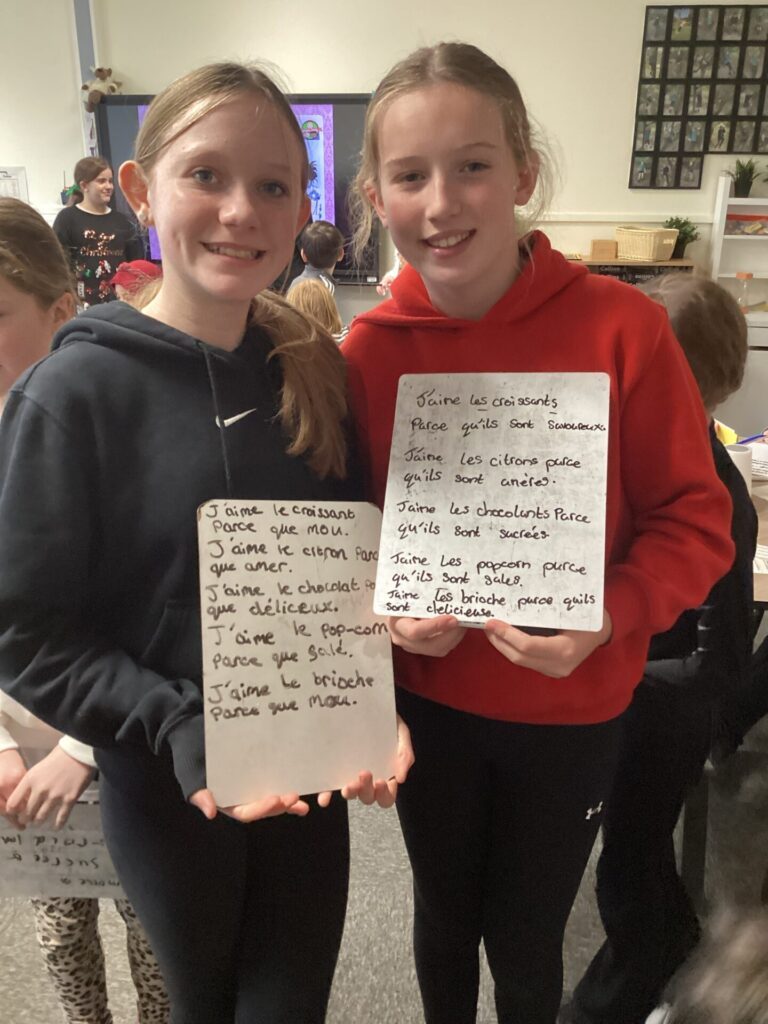 J'aime le croissant
Parce que mou.
J'aime le citron Parc
que amer.
J'aime le chocolat Pa
que déliceux.
J'aime le pop-corn
Parce que salé.
J'aime le brioche
Parce que mou.
J'aime les croissants
Parce qu'ils sont savoureux.
J'aime les citrons parce
qu'ils sont amères.
J'aime les chocolants Parce
qu'ils sont sucrées.
J'aime Les popcorn parce
qu'ils sont sales.
J'aime les brioche parce quils
sont delicieuse.